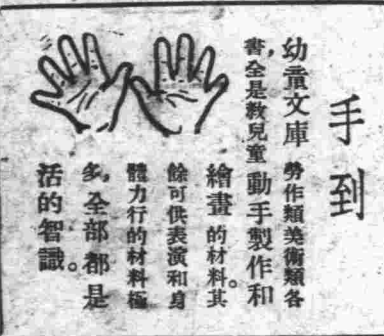 手到
幼童文庫 勞作類美術類各
書，全是教兒童動手製作和
繪畫的材料。其
餘可供表演和身
體力行的材料極
多，全部都是
活的智識。